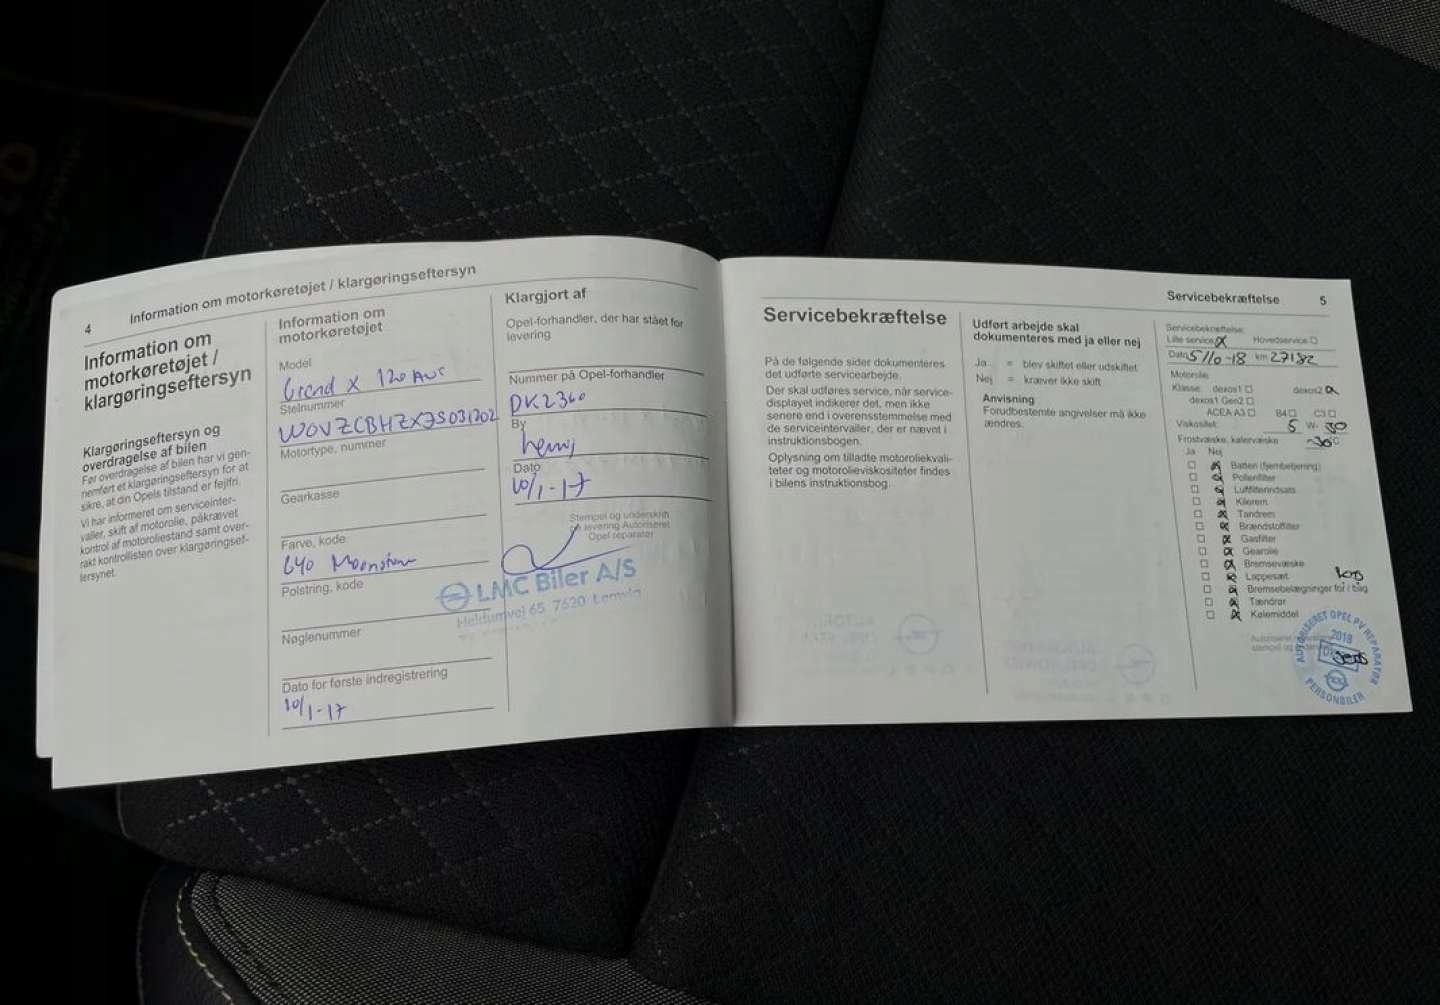 4 Information om motorkøretøjet / klargøringseftersyn
Information om
motorkøretøjet /
klargøringseftersyn
Klargøringseftersyn og
overdragelse af bilen
Før overdragelse af bilen har vi gen-
nemført et klargøringseftersyn for at
sikre, at din Opels tilstand er fejlfri.
Vi har informeret om serviceinter-
valler, skift af motorolie, påkrævet
kontrol af motoroliestand samt over-
rakt kontrollisten over klargøringsef-
tersynet.
Information om
motorkøretøjet
Model
Grand X 120 Aut
Stelnummer
Motortype, nummer
Gearkasse
Farve, kode
G40 Moonstone
Polstring, kode
Nøglenummer
Dato for første indregistrering
10/1-17
Klargjort af
Opel-forhandler, der har stået for
levering
Nummer på Opel-forhandler
DK2360
By
Lemvig
Dato
10/1-17
Stempel og underskrift
levering Autoriseret
Opel reparatør
LMC Biler A/S
Heldumvej 65, 7620 Lemvig
Servicebekræftelse 5
Servicebekræftelse
På de følgende sider dokumenteres
det udførte servicearbejde.
Der skal udføres service, når service-
displayet indikerer det, men ikke
senere end i overensstemmelse med
de serviceintervaller, der er nævnt i
instruktionsbogen.
Oplysning om tilladte motoroliekvali-
teter og motorolieviskositeter findes
i bilens instruktionsbog.
Udført arbejde skal
dokumenteres med ja eller nej
Ja = blev skiftet eller udskiftet
Nej = kræver ikke skift
Anvisning
Forudbestemte angivelser må ikke
ændres.
Servicebekræftelse:
Lille service X Hovedservice
Dato 5/10-18 km 27182
Motorolie
Klasse: dexos1 dexos2
dexos1 Gen2
ACEA A3 B4 C3
Viskositet: 5 W- 30
Frostvæske, kølervæske -36°C
Ja Nej
Batteri (fjernbetjening)
Pollenfilter
Luftfilterindsats
Kilerem
Tandrem
Brændstoffilter
Gasfilter
Gearolie
Bremsevæske
Lappesæt
Bremsebelægninger for / bag
Tændrør
Kølemiddel
AUTORISERET OPEL PV REPARATØR
2018
PERSONBILER